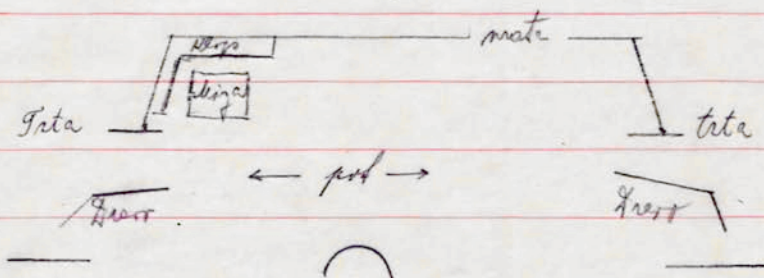 klop
vrata
miza
Trta
trta
← pot →
Drevo
Drevo